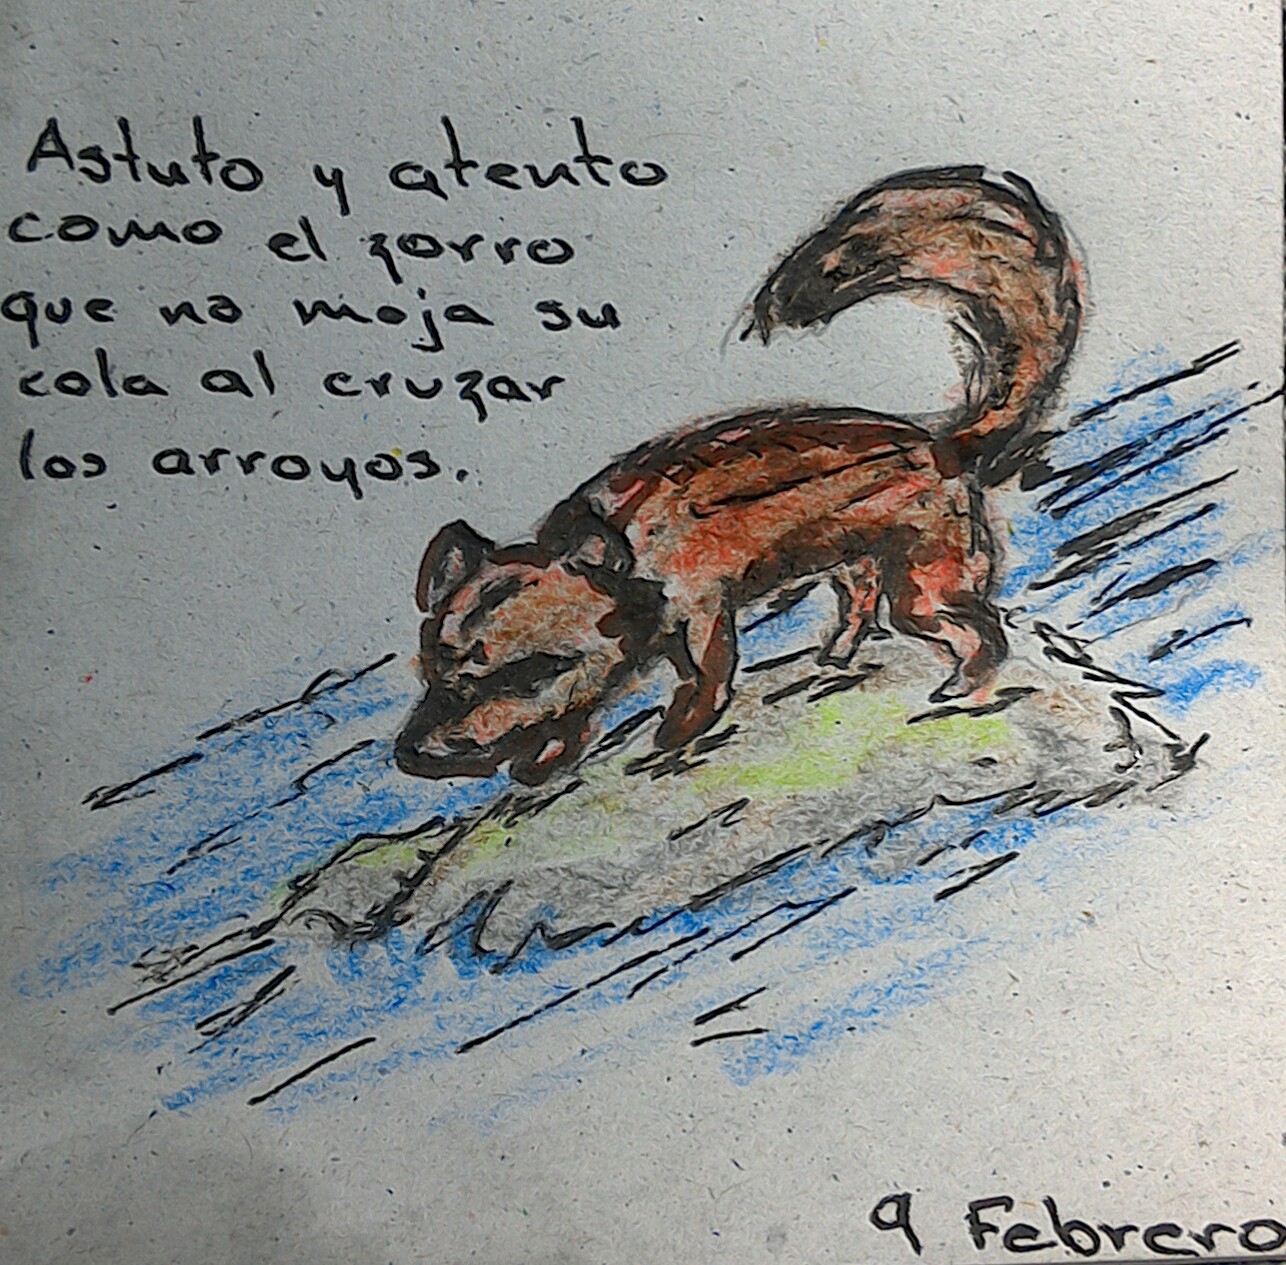 Astuto y atento
como el zorro
que no moja su
cola al cruzar
los arroyos.
9 Febrero